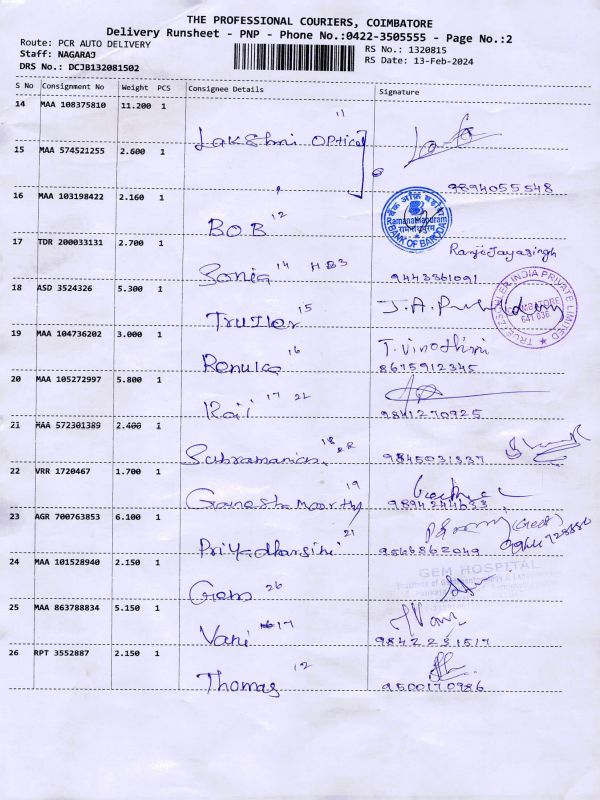 THE PROFESSIONAL COURIERS, COIMBATORE
Delivery Runsheet - PNP - Phone No.:0422-3505555 - Page No.:2
Route: PCR AUTO DELIVERY
Staff: NAGARAJ
DRS No.: DCJB132081502
RS No.: 1320815
RS Date: 13-Feb-2024
S No Consignment No Weight PCS Consignee Details Signature
14 MAA 108375810 11.200 1
11
Lakshmi Optical
15 MAA 574521255 2.600 1
9894055548
16 MAA 103198422 2.160 1
B.O.B 12
बैंक ऑफ़ बड़ौदा
Ramanathapuram
BANK OF BARODA
17 TDR 200033131 2.700 1
Ranjojayasingh
Sonia 14 HB3 9443361091
18 ASD 3524326 5.300 1
J.A.
Truzler 15
TRUETZSCHLER INDIA PRIVATE LIMITED
COIMBATORE
641 036
19 MAA 104736202 3.000 1
T. Vinothini
Renuka 16 8675912345
20 MAA 105272997 5.800 1
Kail 17 22 9841270925
21 MAA 572301389 2.400 1
Subramanian 18 9845031337
22 VRR 1720467 1.700 1
Ganesh Moorthy 19 9894244633
23 AGR 700763853 6.100 1
Priyadharsini 21 9566862049
24 MAA 101528940 2.150 1
GEM HOSPITAL
Gem 26
25 MAA 863788834 5.150 1
Vani 17 9842231517
26 RPT 3552887 2.150 1
Thomas 12 9500170986